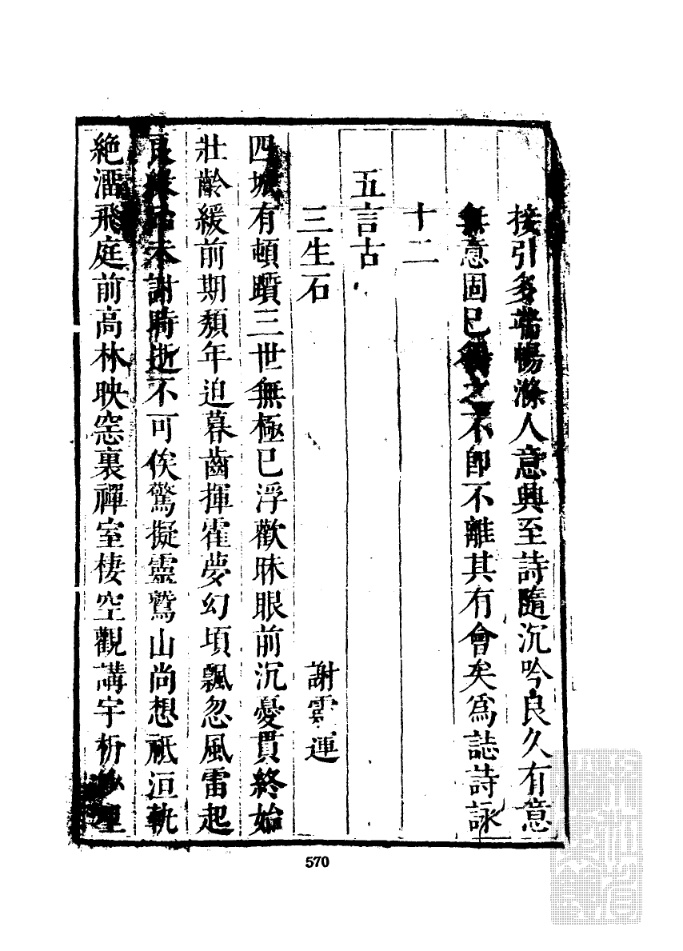 接引多端暢滌人意興至詩隨沉吟良久有意
無意固已得之不卽不離其有會矣爲誌詩詠
十二
五言古
三生石
謝靈運
四城有頓躓三世無極已浮歡昧眼前沉憂貫終始
壯齡緩前期頹年迫暮齒揮霍夢幻頃飄忽風雷起
良緣迨未謝時逝不可俟驚擬靈鷲山尚想祇洹軌
絶溜飛庭前高林映窓裏禪室棲空觀講宇析妙理
570